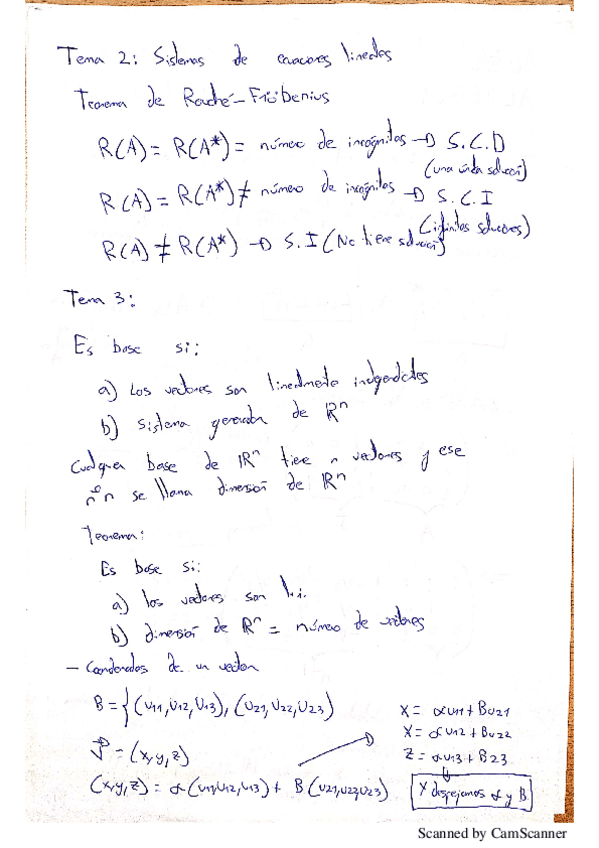 Tema 2: Sistemas de ecuaciones lineales
Teorema de Rouché-Fröbenius
R(A) = R(A*) = número de incógnitas → S.C.D
(una única solución)
R(A) = R(A*) ≠ número de incógnitas → S.C.I
(infinitas soluciones)
R(A) ≠ R(A*) → S.I (No tiene solución)
Tema 3:
Es base si:
a) Los vectores son linealmente independientes
b) Sistema generador de ℝⁿ
Cualquier base de ℝⁿ tiene n vectores y ese
nº n se llama dimensión de ℝⁿ
Teorema:
Es base si:
a) los vectores son l.i.
b) dimensión de ℝⁿ = número de vectores
- Coordenadas de un vector
B = {(u11, u12, u13), (u21, u22, u23)
= (x, y, z)
(x, y, z) = α(u11, u12, u13) + B(u21, u22, u23)
→
x = αu11 + Bu21
x = αu12 + Bu22
z = αu13 + B23
↓
Y despejamos α y B
Scanned by CamScanner